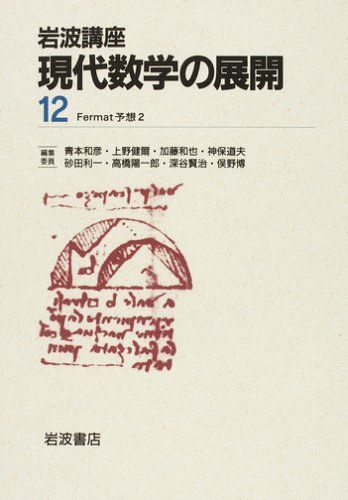 岩波講座
現代数学の展開
12 Fermat予想2
編集委員 青本和彦・上野健爾・加藤和也・神保道夫
砂田利一・高橋陽一郎・深谷賢治・俣野博
岩波書店